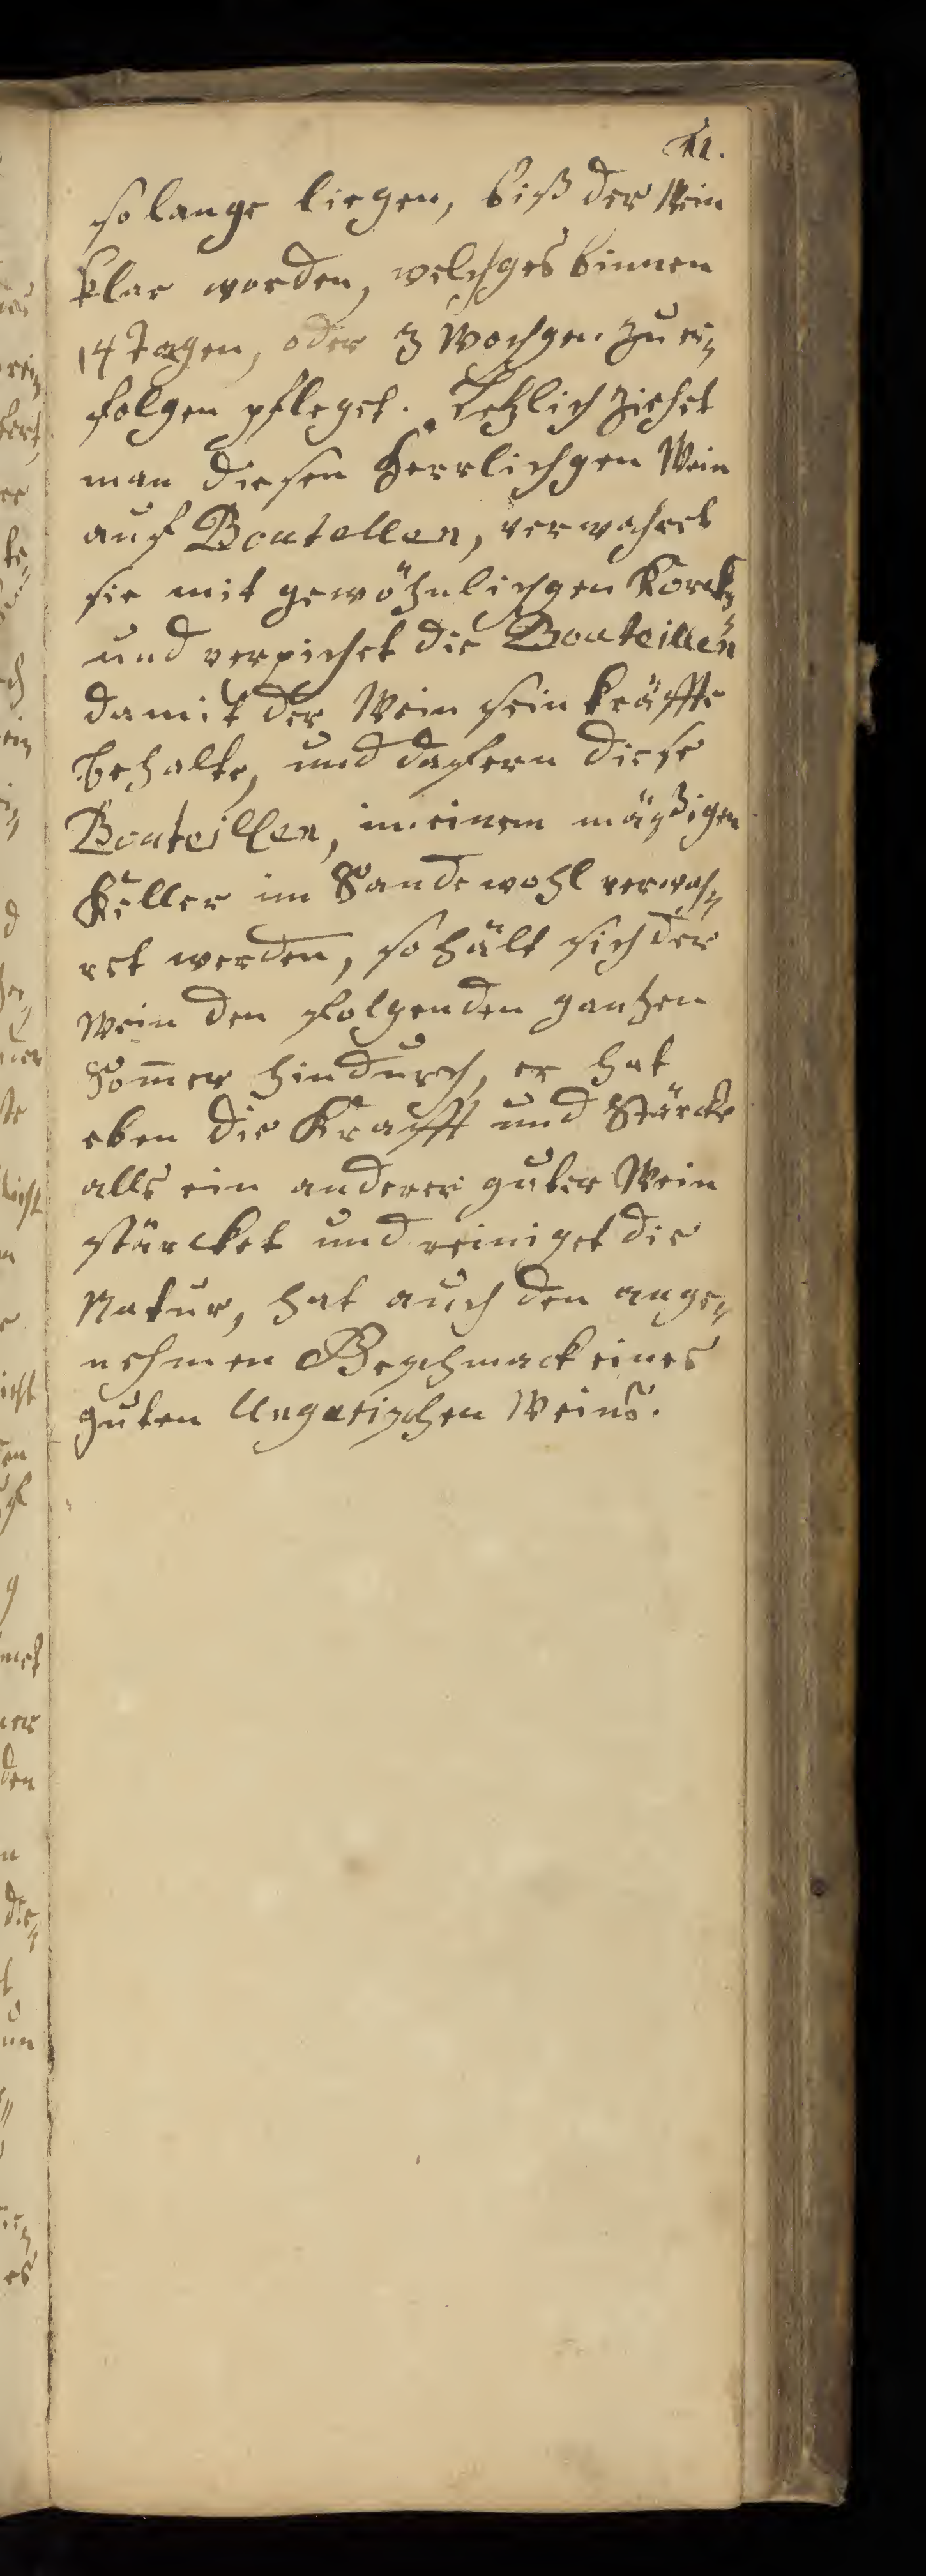 11.
so lange liegen, biß der Wein
klar worden, welches binnen
14 Tagen, oder 3 Wochen zu er⸗
folgen pfleget. Letzlich ziehet
man diesen herrlichen Wein
auf Boutellen, verwahret
sie mit gewöhnlichen Korck⸗
und verpichet die Bouteillen
damit der Wein sein kräffte
behalte, und dafern diese
Bouteillen, in einem mäßigen
Keller im Sande wohl verwah⸗
ret werden, so hält sich der
Wein den folgenden gantzen
Som̅er hindurch, er hat
eben die Krafft und Stärcke
alls ein anderer guter Wein
stärcket und reiniget die
Natur, hat auch den ange⸗
nehmen Geschmack eines
guten Ungarischen Weins.